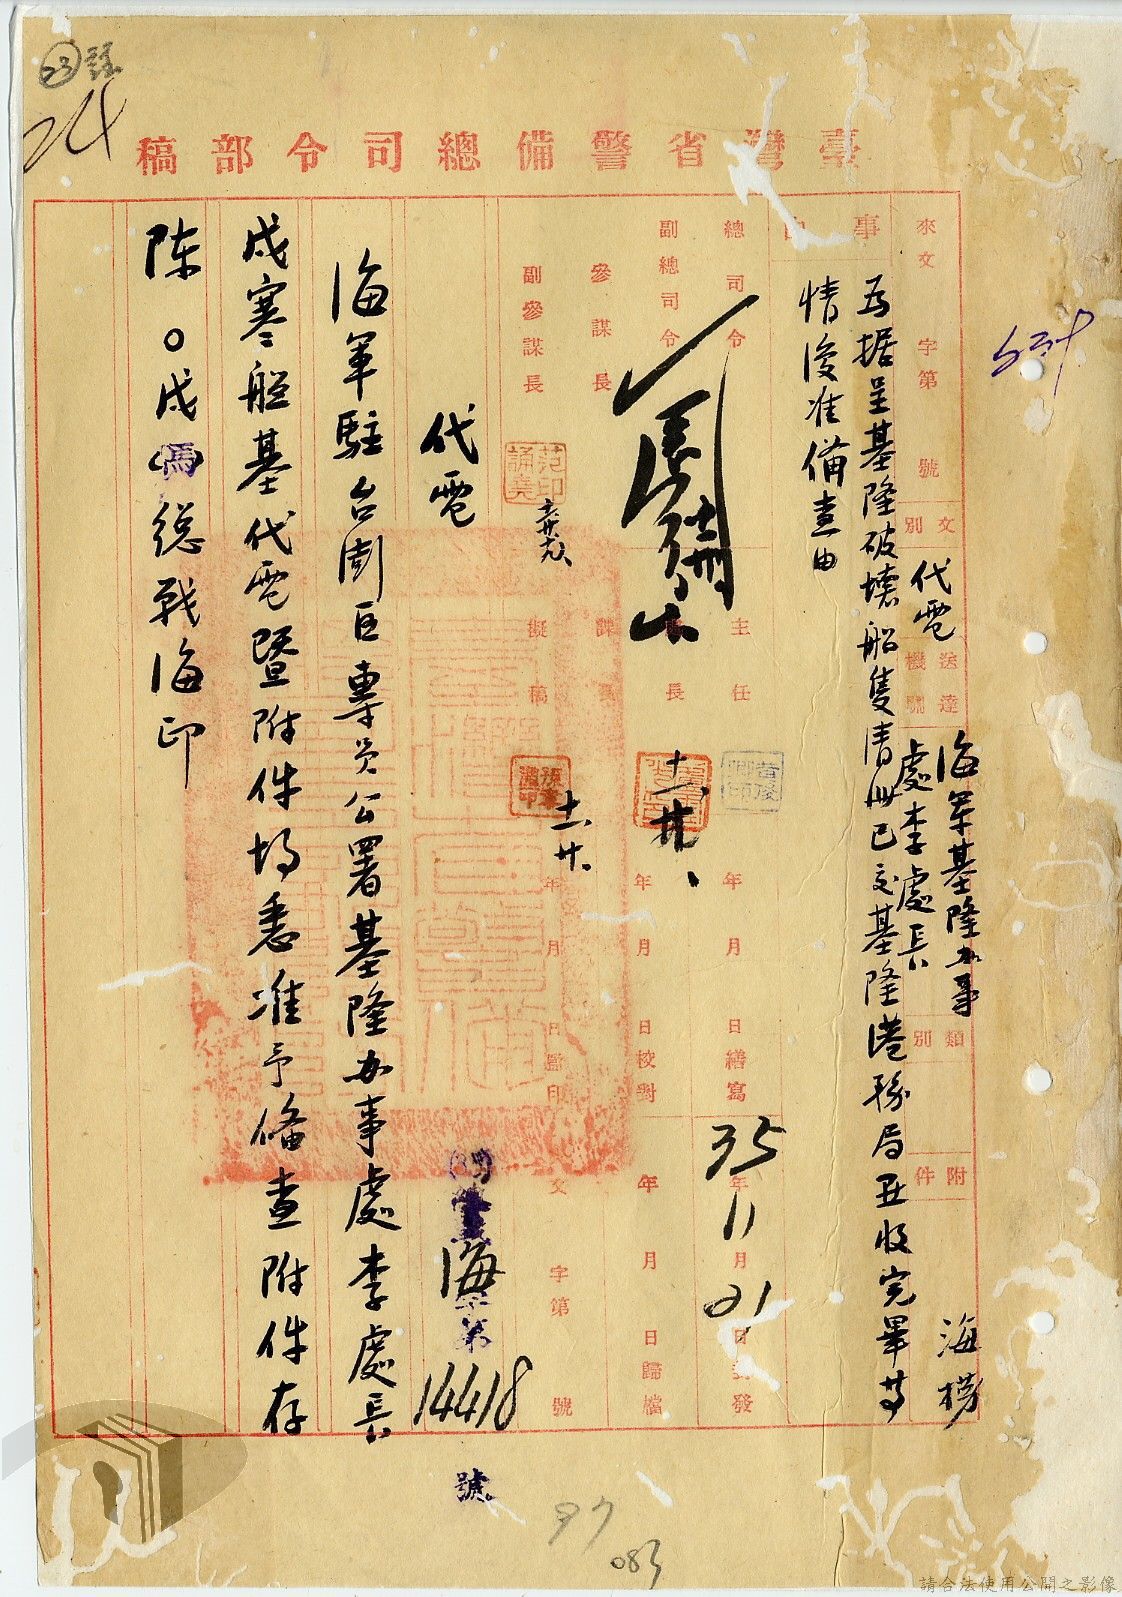 23 號
24
臺灣省警備總司令部稿
來文 字第 號
文別 代電
送達機關 海軍基隆辦事
處李處長
類別
附件
海 榜
事由
為据呈基隆破壞船隻清册已交基隆港務局點收完畢等
情復准備查由
總司令
副總司令
參謀長
副參謀長
范誦堯印
主任
課長
擬稿
十一、廿、
十一、廿、
年 月 日繕寫
年 月 日校對
年 月 日監印
35年11月21日封發
年 月 日歸檔
文 字第 號
代電
海字第14418號
海軍駐台澎區專員公署基隆办事處李處長
戍寒艇基代電暨附件均悉准予備查附件存
陈○戍(馬)總戰海印
37
083
請合法使用公開之影像